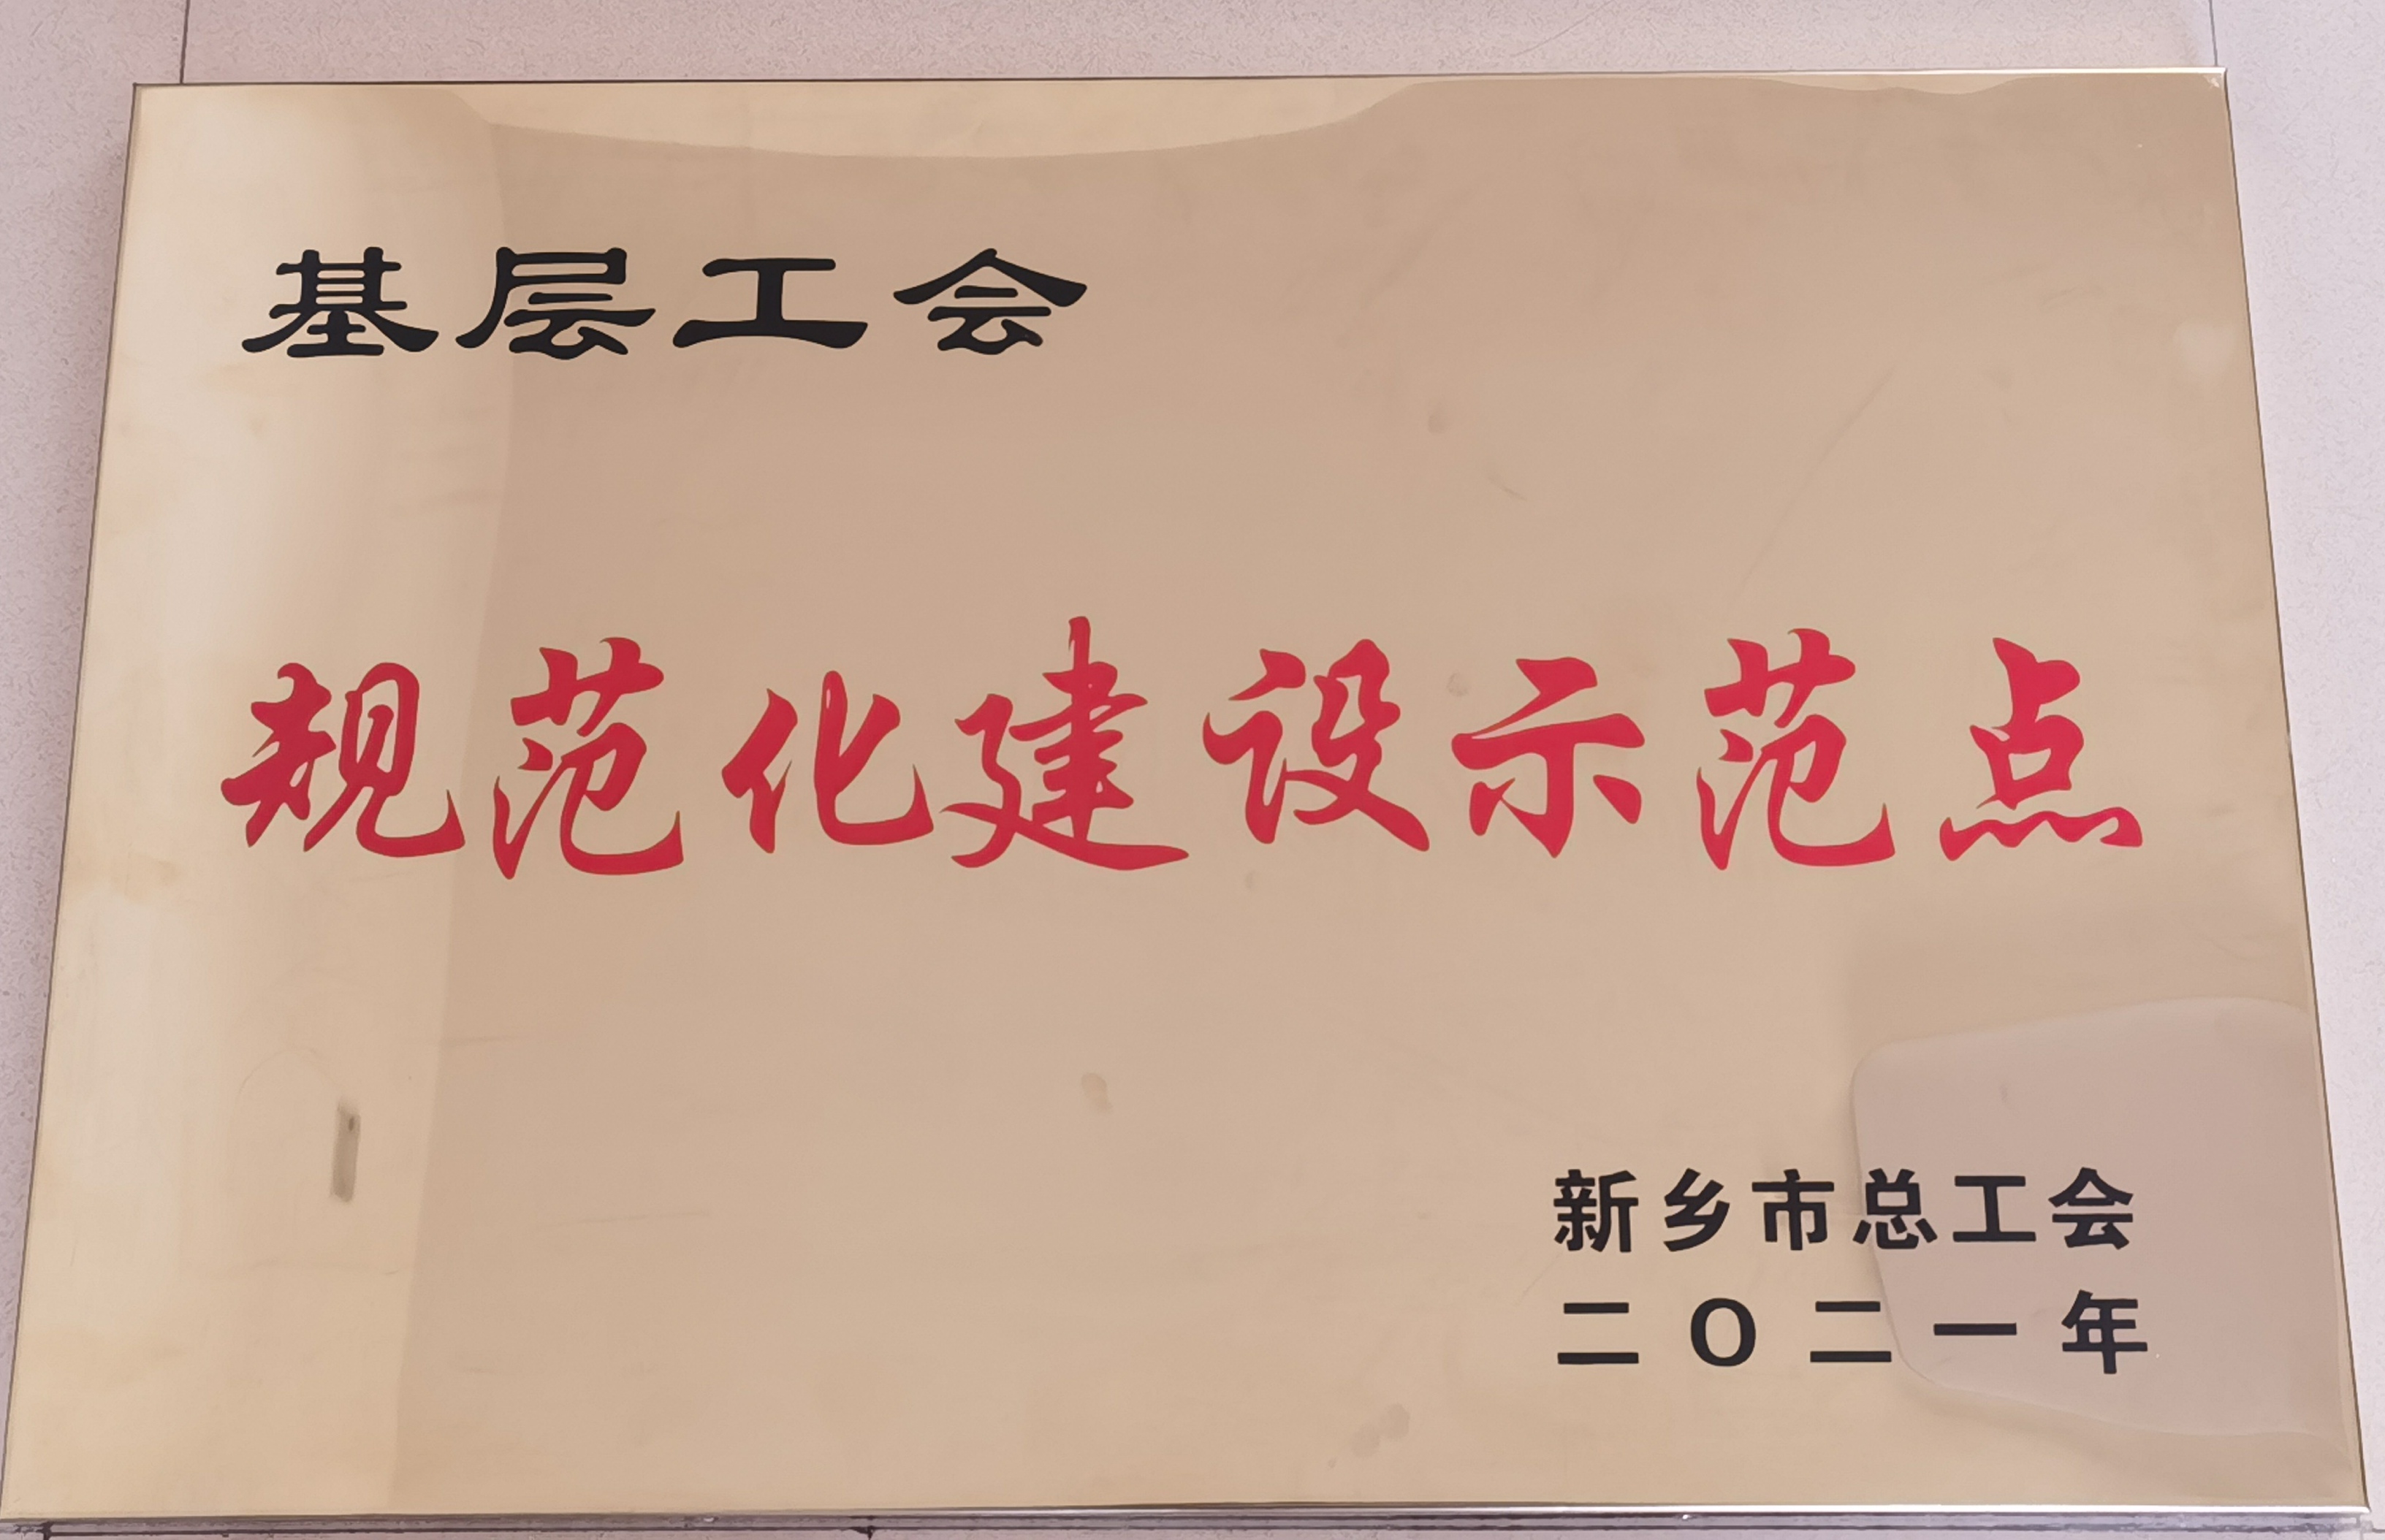 基层工会
规范化建设示范点
新乡市总工会
二〇二一年